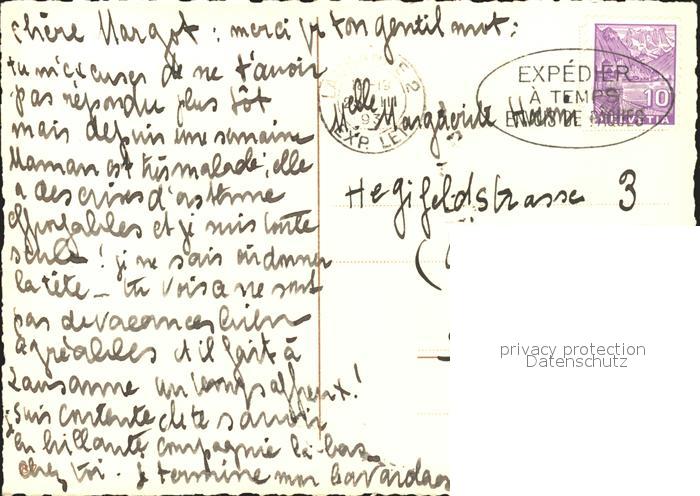 chère Margot : merci pr ton gentil mot ;
tu m'excuses de ne t'avoir
pas répondu plus tôt
mais depuis une semaine
Maman est très malade, elle
a des crises d'asthme
effroyables et je suis toute
seule ! je ne sais où donner
la tête _ tu vois ce ne sont
pas de vacances bien
agréables et il fait à
Lausanne un temps affreux !
je suis contente de te savoir
en brillante compagnie là-bas
chez toi . Je termine mon bavardage
EXP. LET
EXPÉDIER
À TEMPS
ENVOIS DE PÂQUES
10
HELVETIA
Melle Marguerite
Hegifeldstrasse 3
privacy protection
Datenschutz